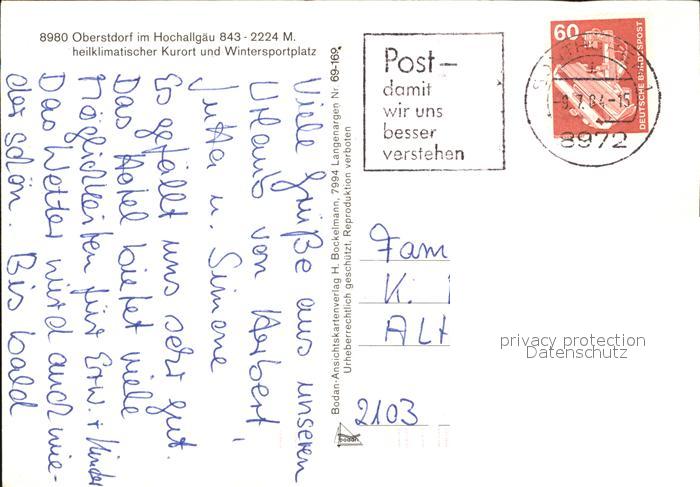 8980 Oberstdorf im Hochallgäu 843 - 2224 M.
heilklimatischer Kurort und Wintersportplatz
Viele Grüße aus unseren
Urlaub von Herbert,
Jutta u. Simone
Es gefällt uns sehr gut.
Das Hotel bietet viele
Möglichkeiten für Erw. + Kinder
Das Wetter wird auch wie-
der schön. Bis bald
Bodan-Ansichtskartenverlag H. Bockelmann, 7994 Langenargen Nr. 69-169
Urheberrechtlich geschützt. Reproduktion verboten
bodan
Post-
damit
wir uns
besser
verstehen
60
DEUTSCHE BUNDESPOST
-9.7.84-15
8972
Fam
K.
ALT
2103
privacy protection
Datenschutz